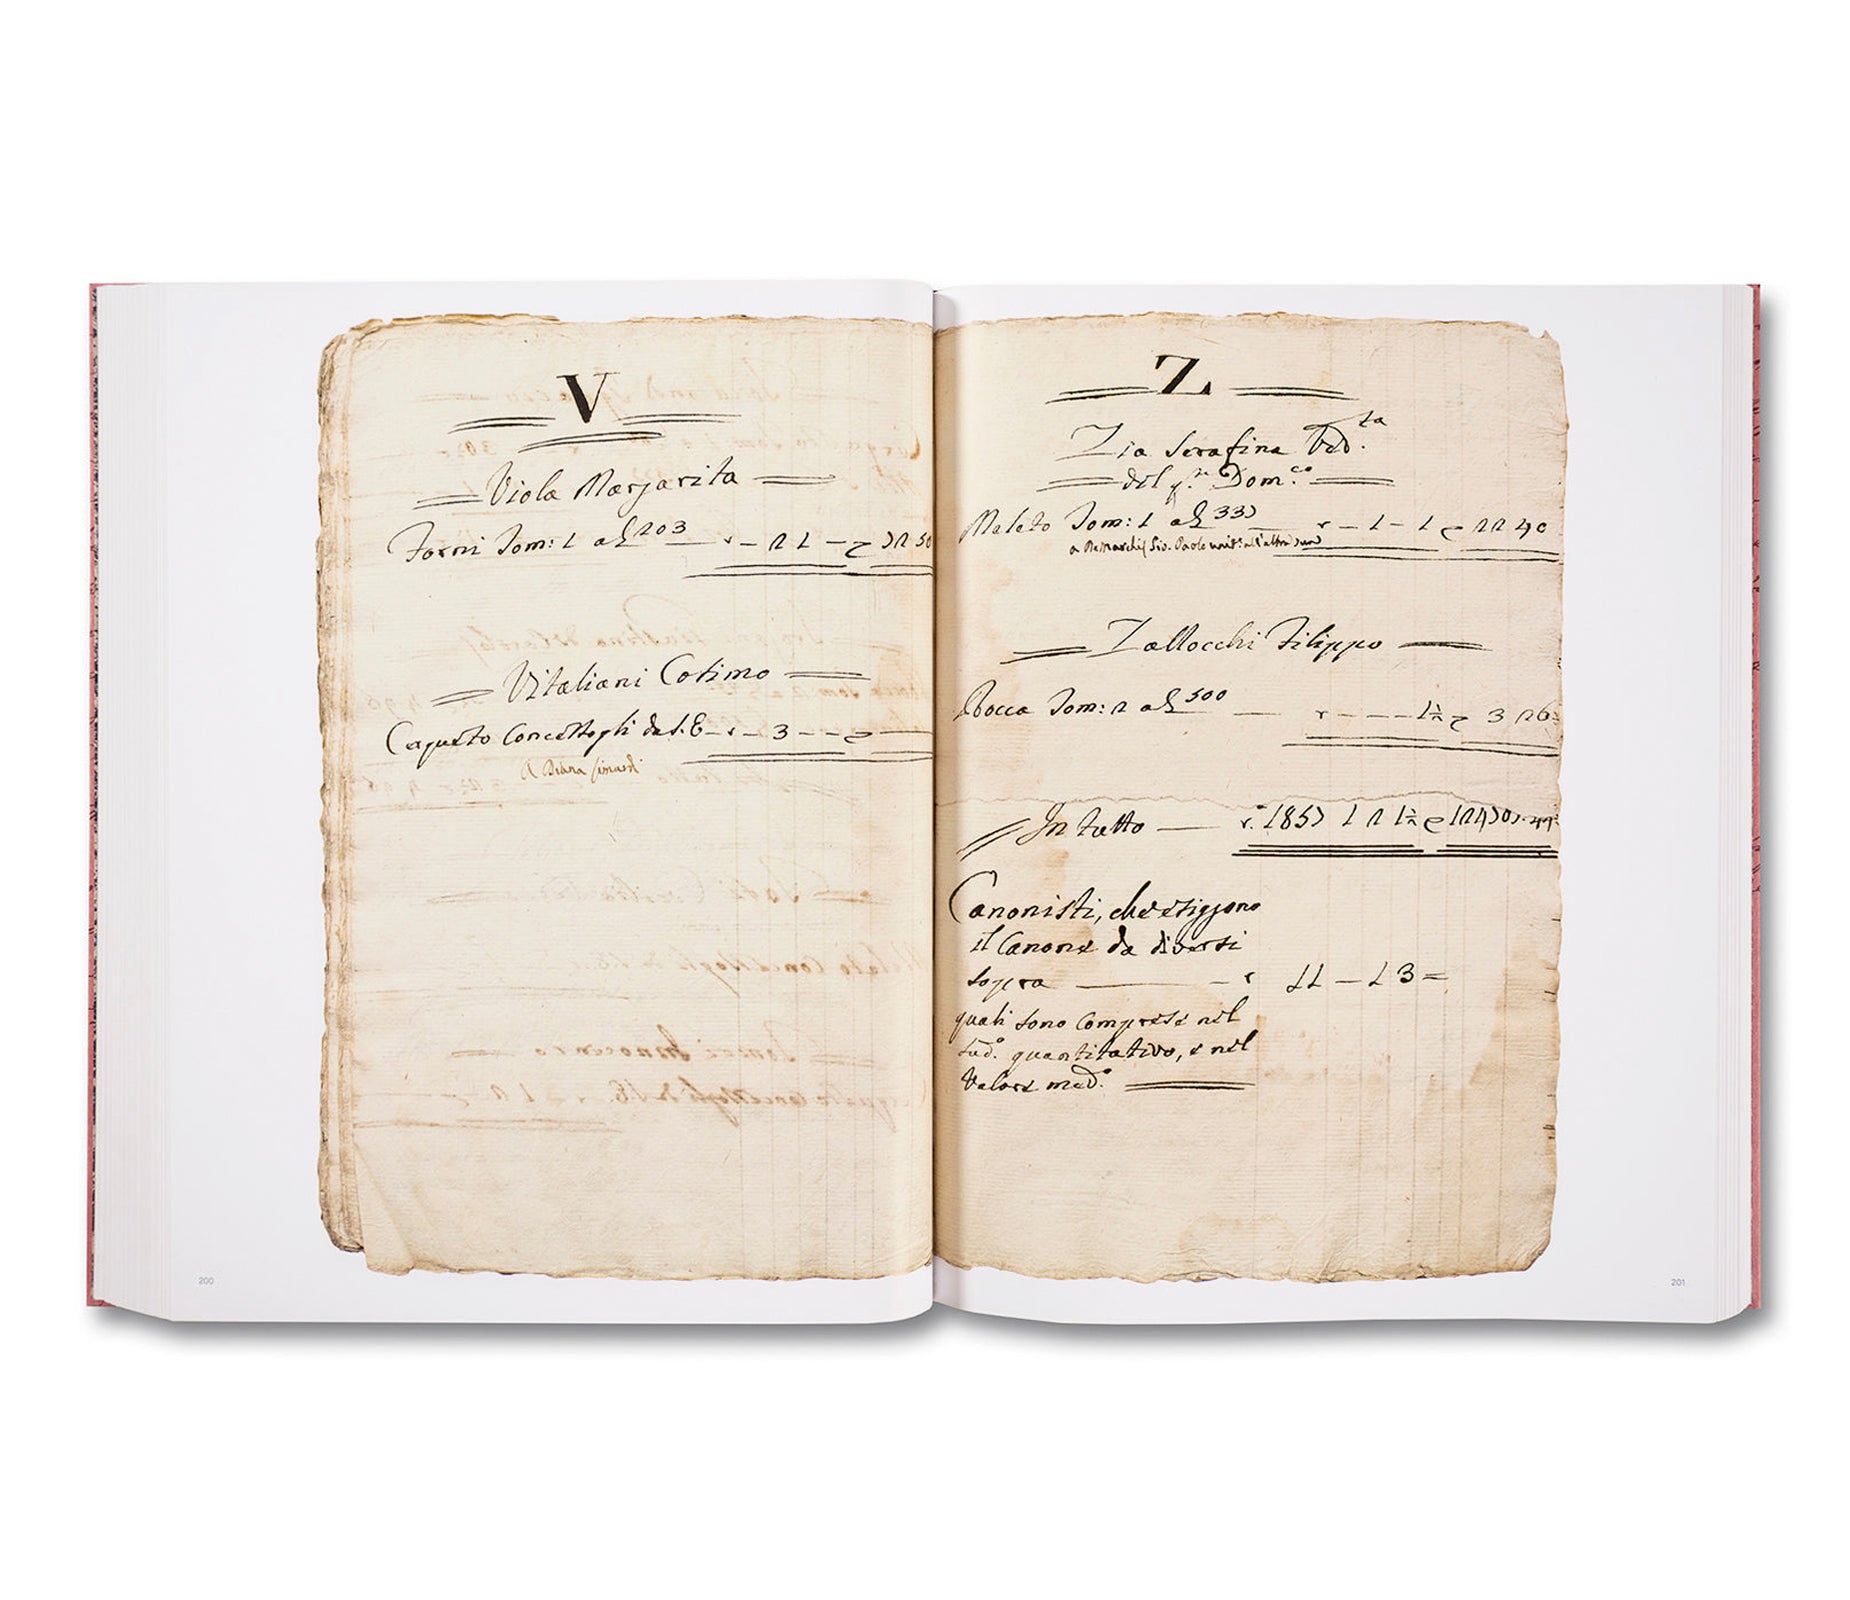 V
Viola Margarita
Forni Tom: 1 al 203
Vitaliani Cosimo
Cerqueto Concettogli da S. E - r - 3 - -
A Diana
200
Z
Zia Serafina Ved.ta
del q.m Dom.co
Meleto Tom: 1 al 337 r - 1 - 1 22 40
a
Zallocchi Filippo
Rocca Tom: 2 al 500 3 26
In tutto r. 1857 1 2 1½
Canonisti, che esiggono
il Canone da diversi
sopra r 11 - 1 3 =
quali sono comprese nel
sud.o quantitativo, e nel
Valore med.o
201